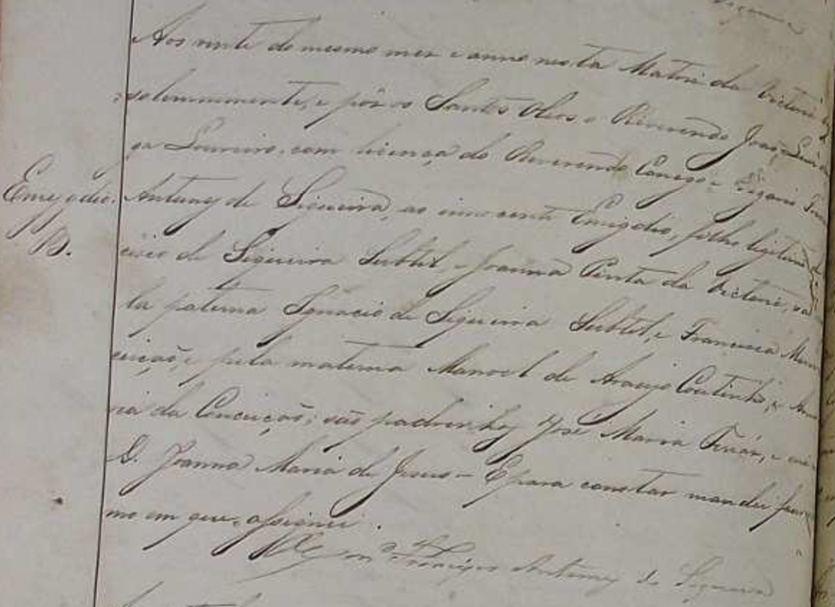 Aos vinte do mesmo mez e anno nesta Matriz da Victoria
solemnemente, e pôz os Santos Oleos o Reverendo João Luis
ga Loureiro, com licença do Reverendo Conego Vigario Fran
Emygdio. Antunes de Siqueira, ao innocente Emigdio, filho legitimo de
B. cisco de Siqueira Subtil, e Joanna Pinta da Victoria,
la paterna Ignacio de Siqueira Subtil, e Francisca Maria
ceição, e pela materna Manoel de Araujo Coutinho, e
ria da Conceição; são padrinhos José Maria
D. Joanna Maria de Jesus = E para constar mandei
mo em que assignei.
Francisco Antunes de Siqueira